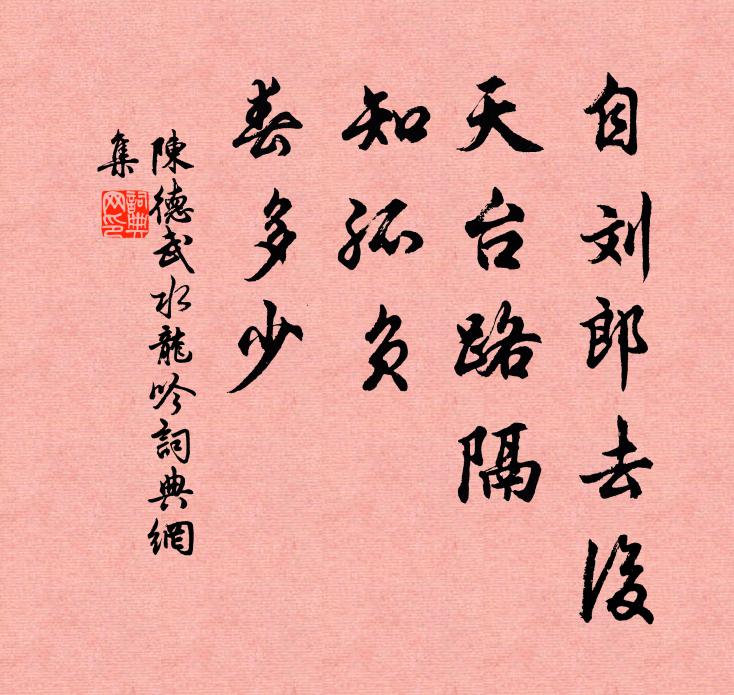 自刘郎去後
天台路隔
知孤负
春多少
陳德武水龍吟詞典網
集
詞典
网印